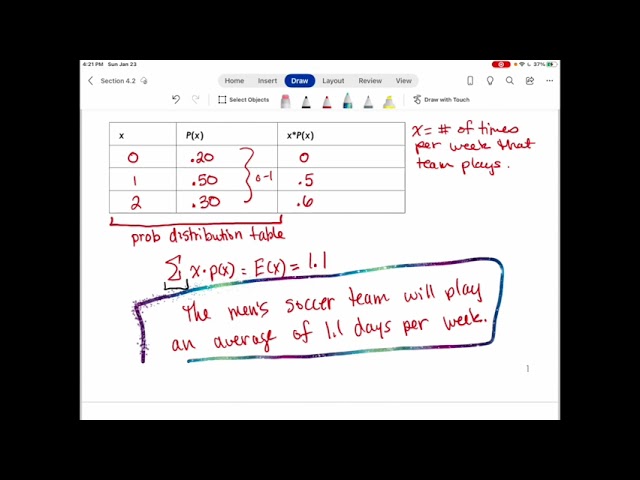 4:21 PM Sun Jan 23
37%
Section 4.2
Home Insert Draw Layout Review View
Select Objects
Draw with Touch
x P(x) x*P(x)
0 .20 0
1 .50 .5
2 .30 .6
0-1
x = # of times
per week that
team plays.
prob distribution table
∑ x·p(x) = E(x) = 1.1
The men's soccer team will play
an average of 1.1 days per week.
1